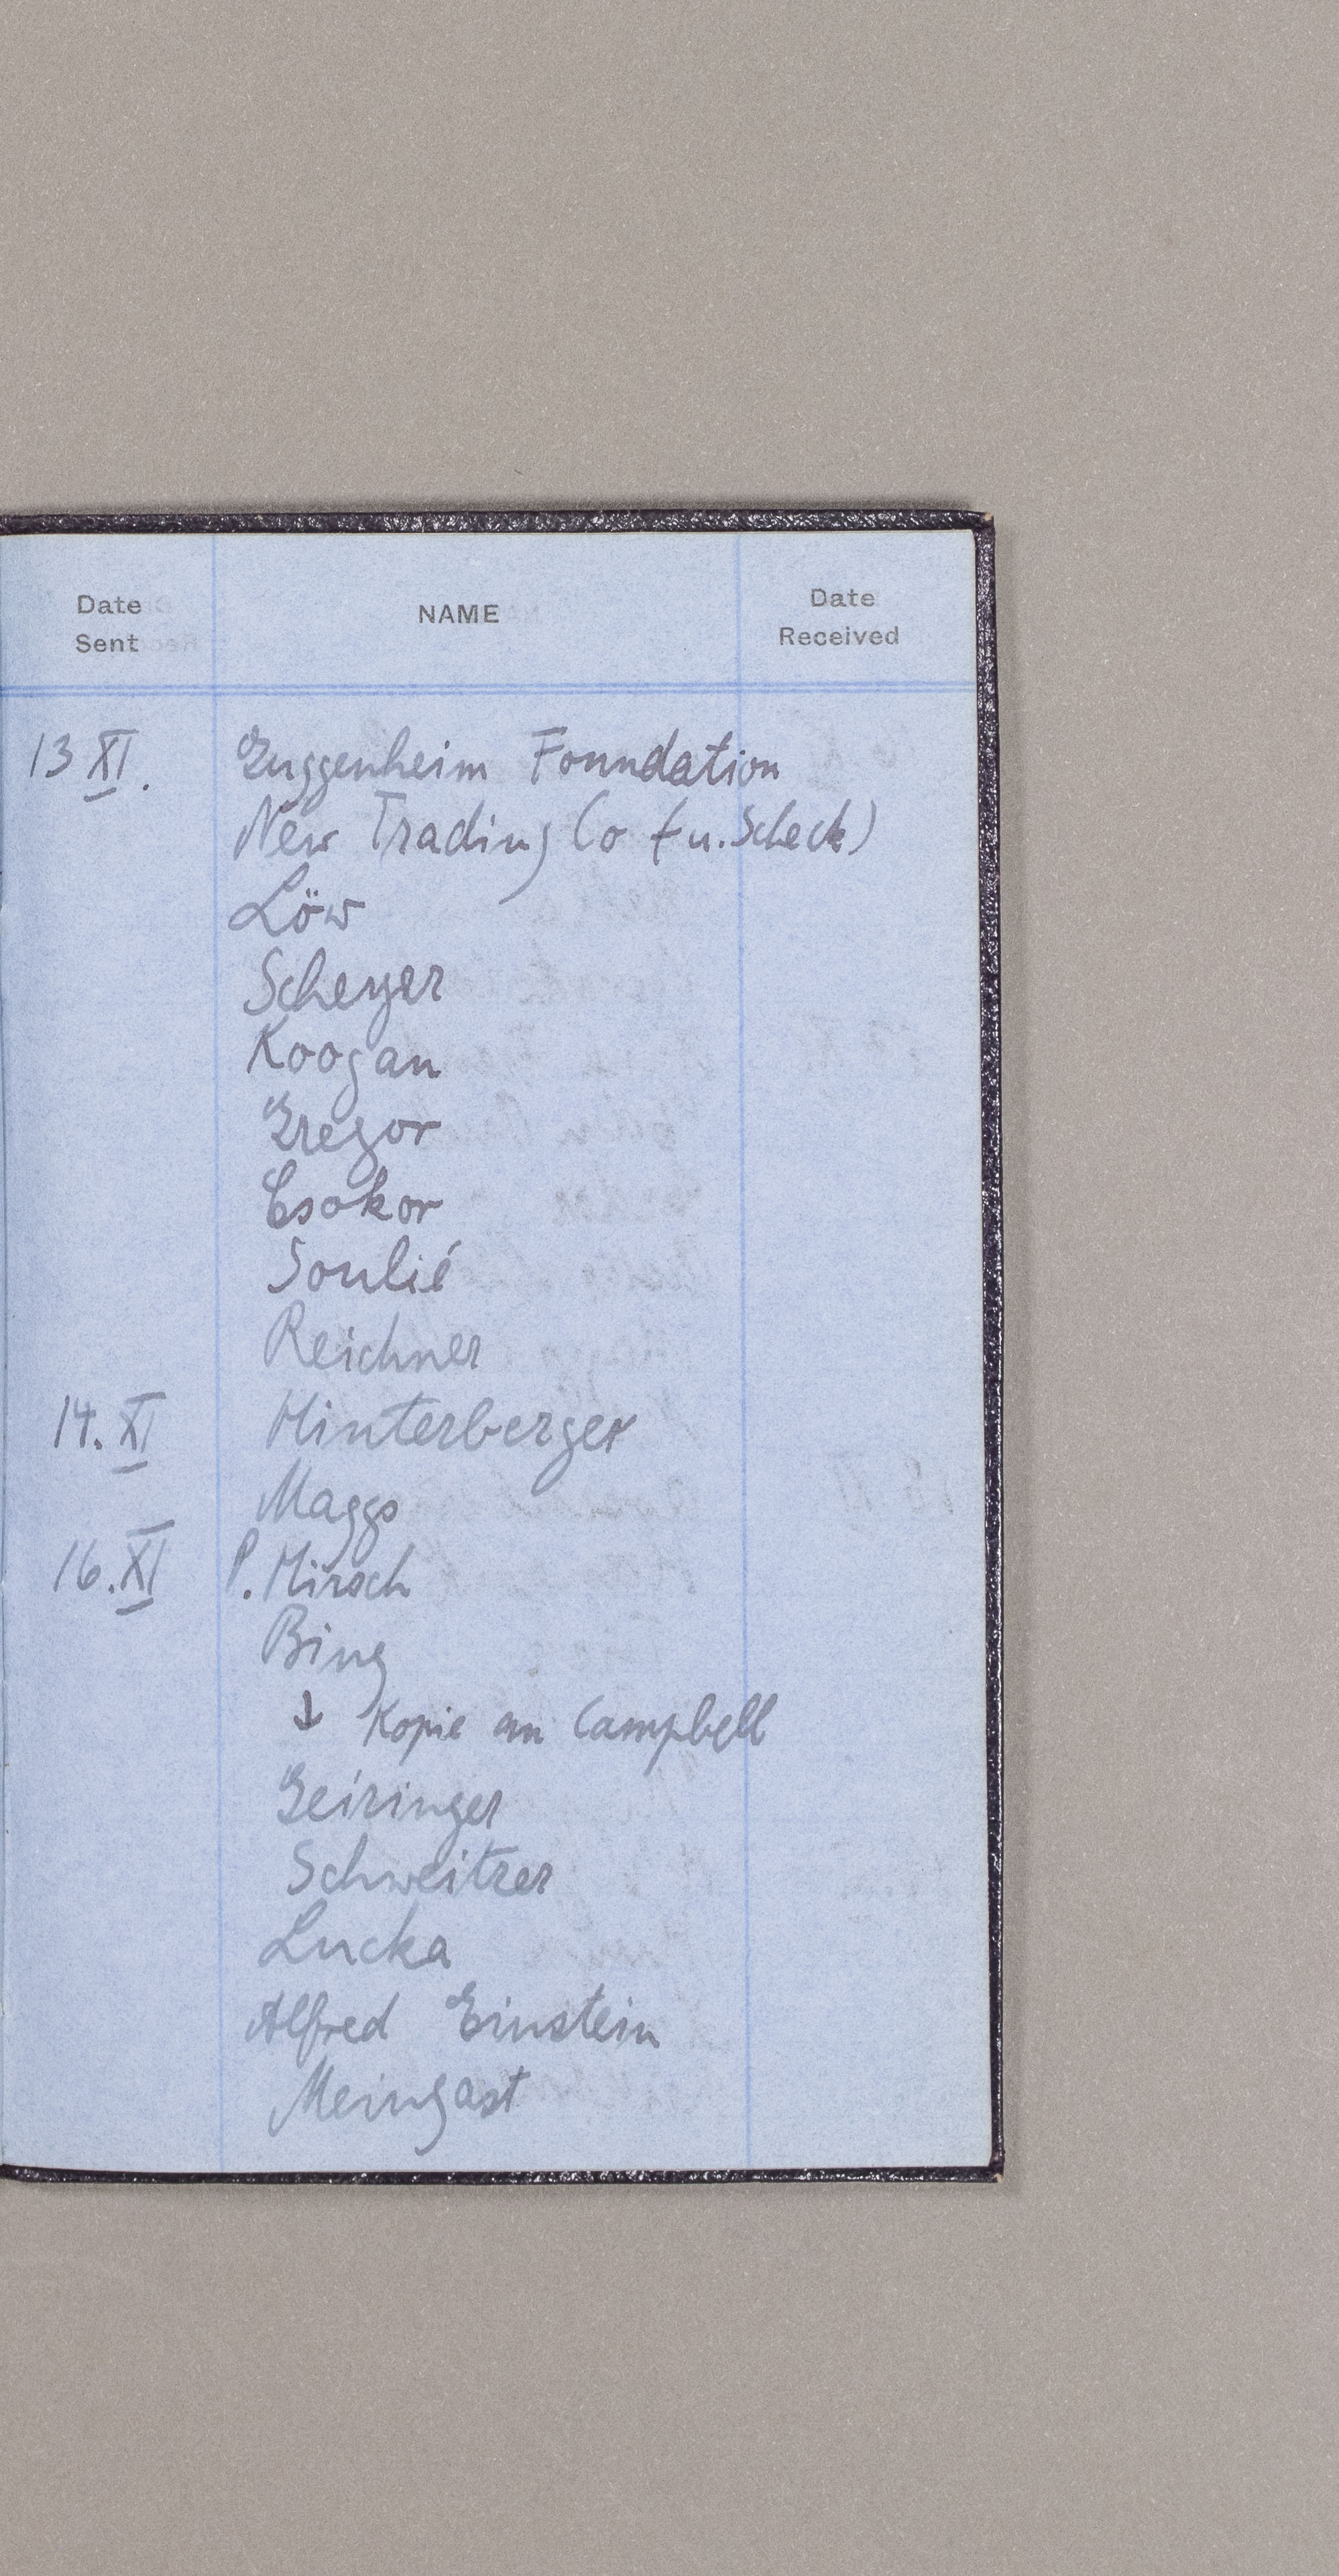 Date Sent NAME Date Received
13 XI. Guggenheim Foundation
New Trading Co (u. Scheck)
Löw
Scheyer
Koogan
Gregor
Csokor
Soulié
Reichner
14. XI Hinterberger
Maggs
16. XI P. Hirsch
Bing
↓ Kopie an Campbell
Geiringer
Schweitzer
Lucka
Alfred Einstein
Meingast